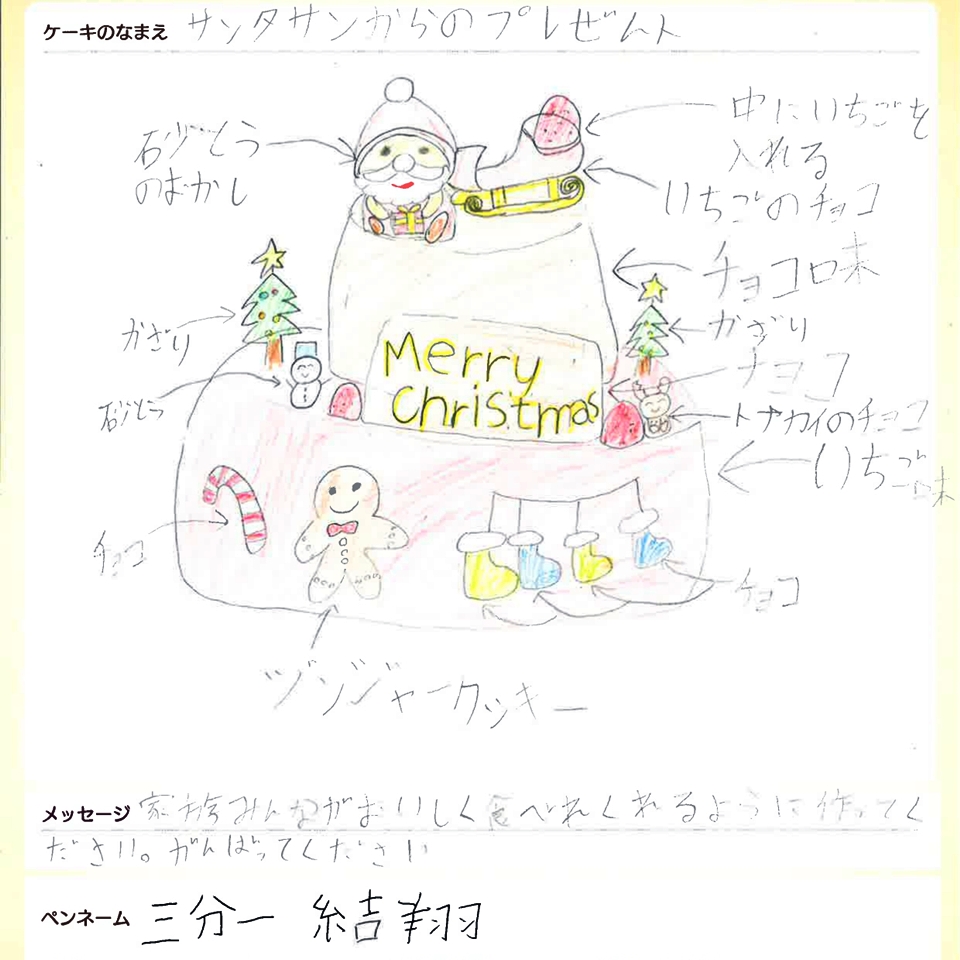 ケーキのなまえ サンタサンからのプレゼント
砂とう
のおかし
中にいちごを
入れる
いちごのチョコ
チョコ味
かざり
かざり
チョコ
砂とう
トナカイのチョコ
いちご味
Merry
Christmas
チョコ
チョコ
ジンジャークッキー
メッセージ 家族みんながおいしく食べれくれるように作ってく
ださい。がんばってください
ペンネーム 三分一 結翔